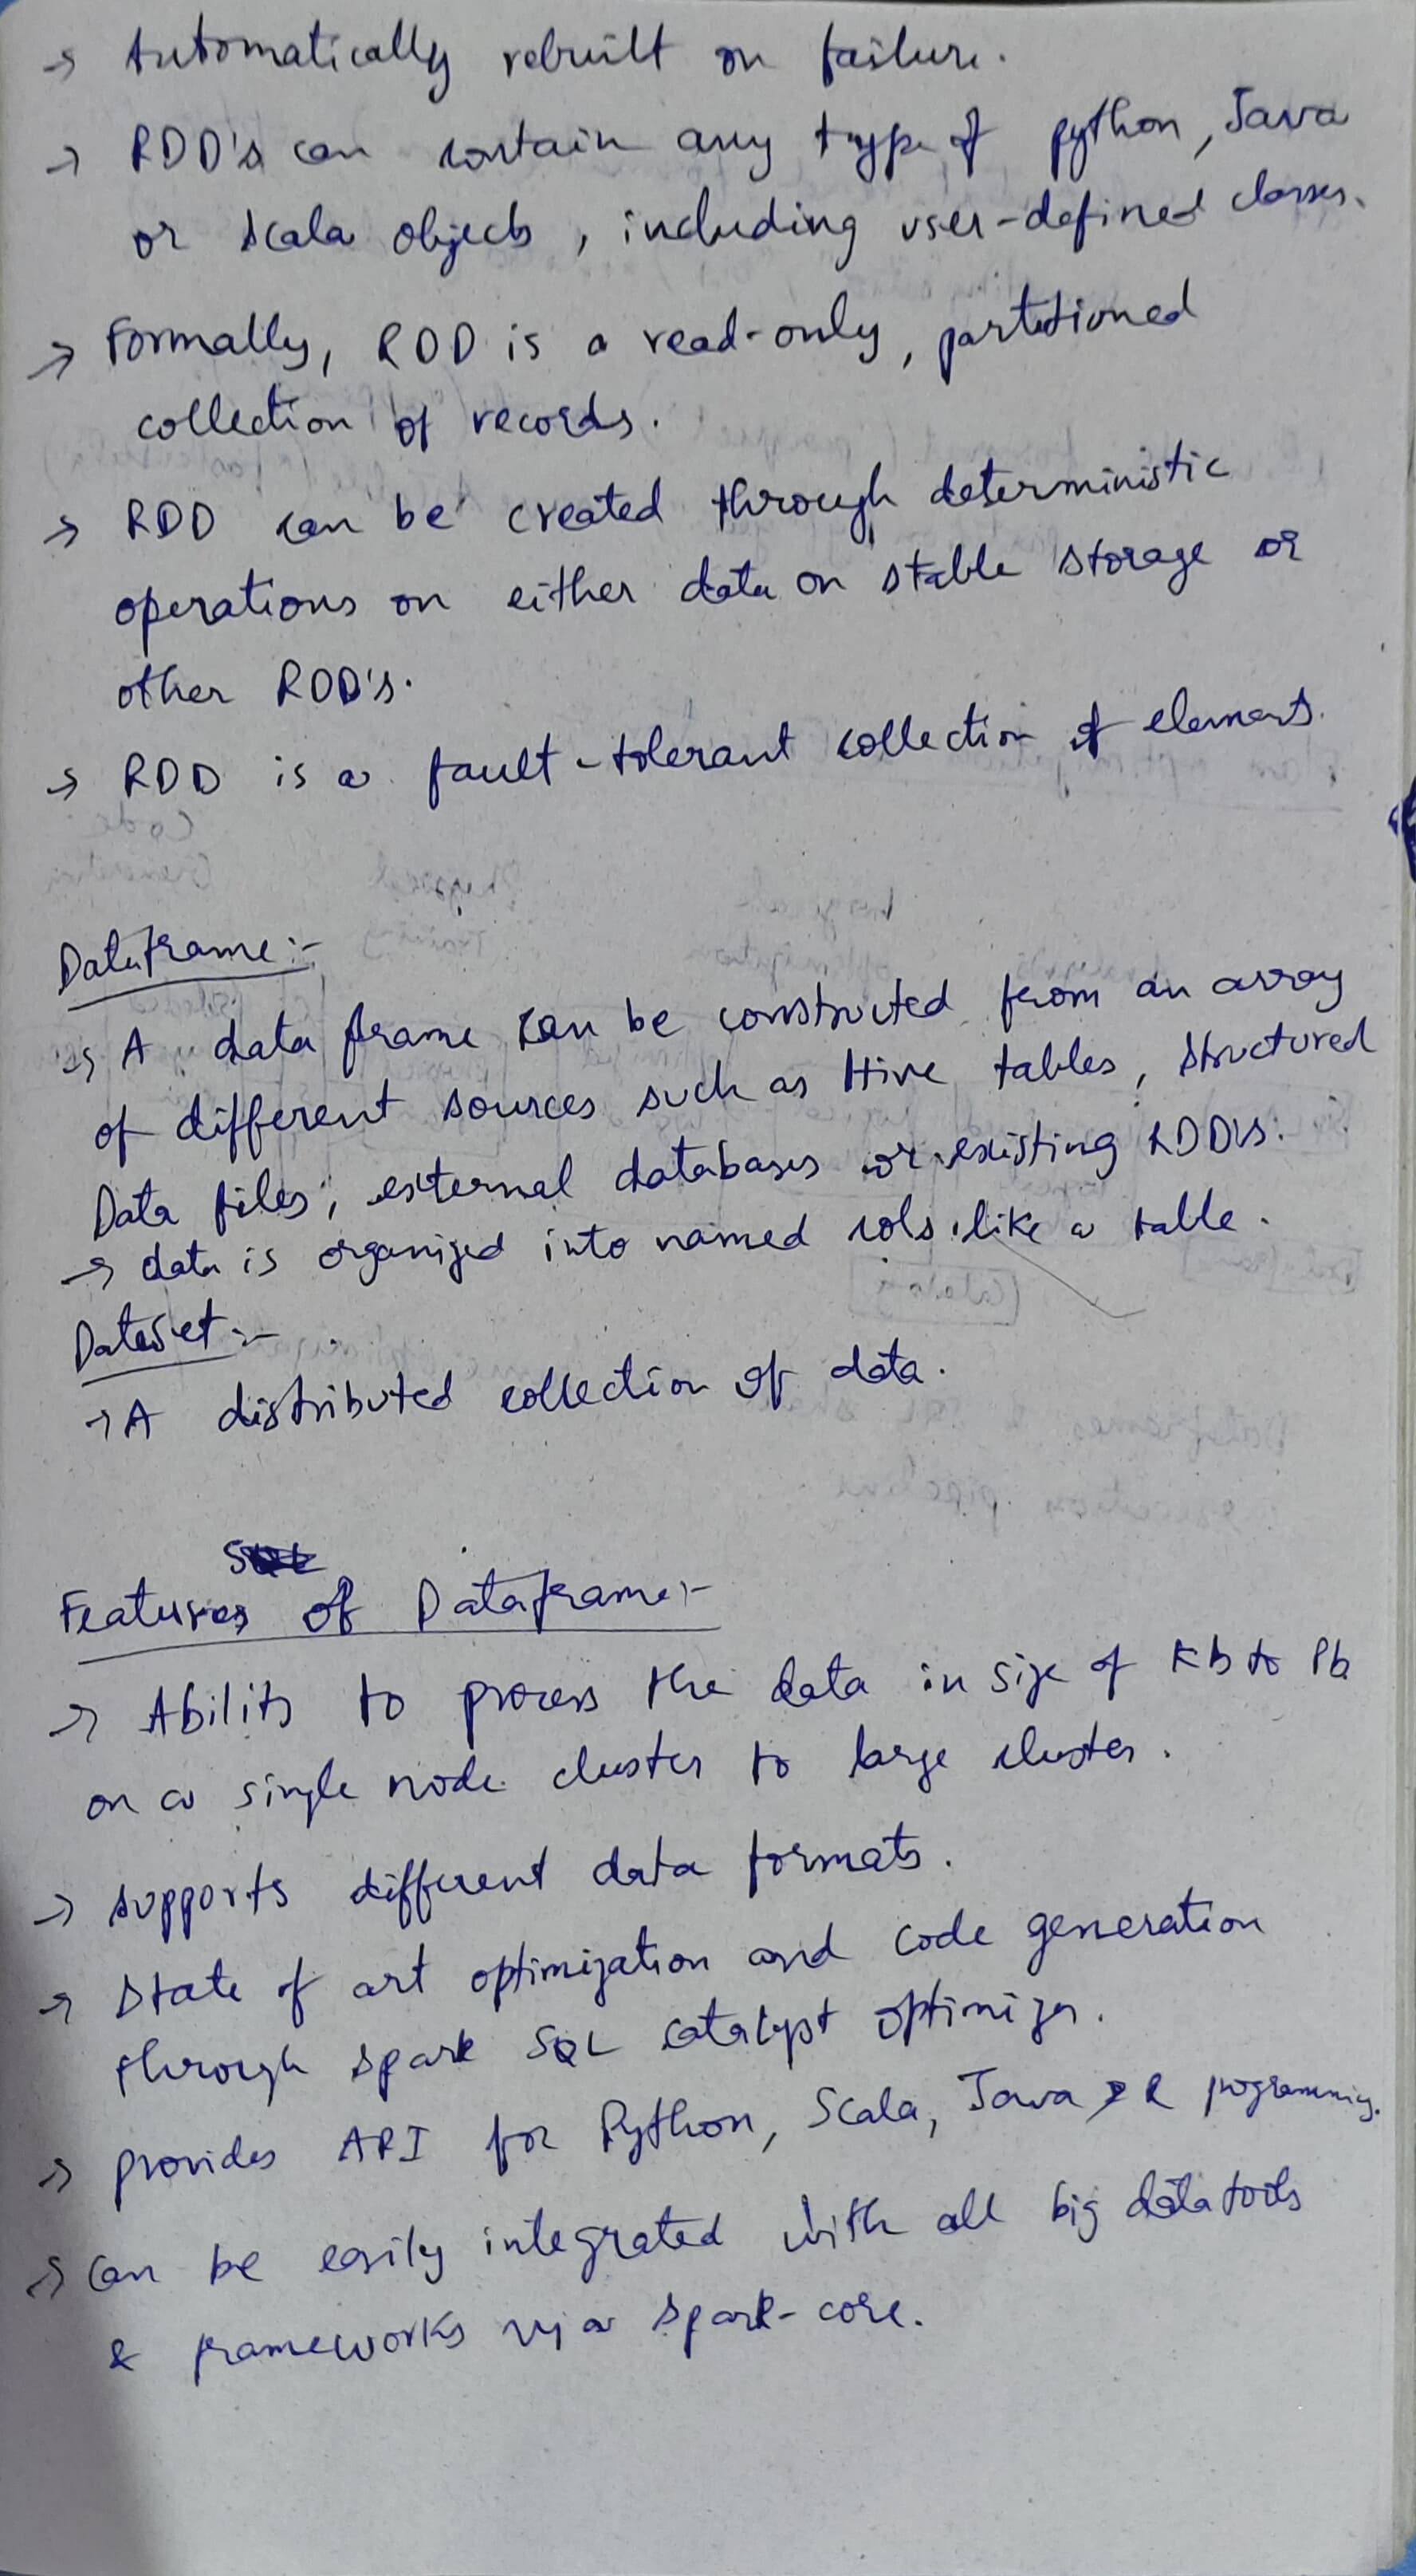 → Automatically rebuilt on failure.
→ RDD's can contain any type of python, Java
or Scala objects, including user-defined classes.
→ Formally, RDD is a read-only, partitioned
collection of records.
→ RDD can be created through deterministic
operations on either data on stable storage or
other RDD's.
→ RDD is a fault-tolerant collection of elements.
Dataframe:-
→ A data frame can be constructed from an array
of different sources such as Hive tables, structured
Data files, external databases or existing RDD's.
→ data is organized into named cols like a table.
Dataset:-
→ A distributed collection of data.
Features of Dataframe:-
→ Ability to process the data in size of Kb to Pb
on a single node cluster to large cluster.
→ supports different data formats.
→ State of art optimization and code generation
through spark SQL catalyst optimizer.
→ provides API for Python, Scala, Java R programming.
→ Can be easily integrated with all big data tools
& frameworks via spark-core.